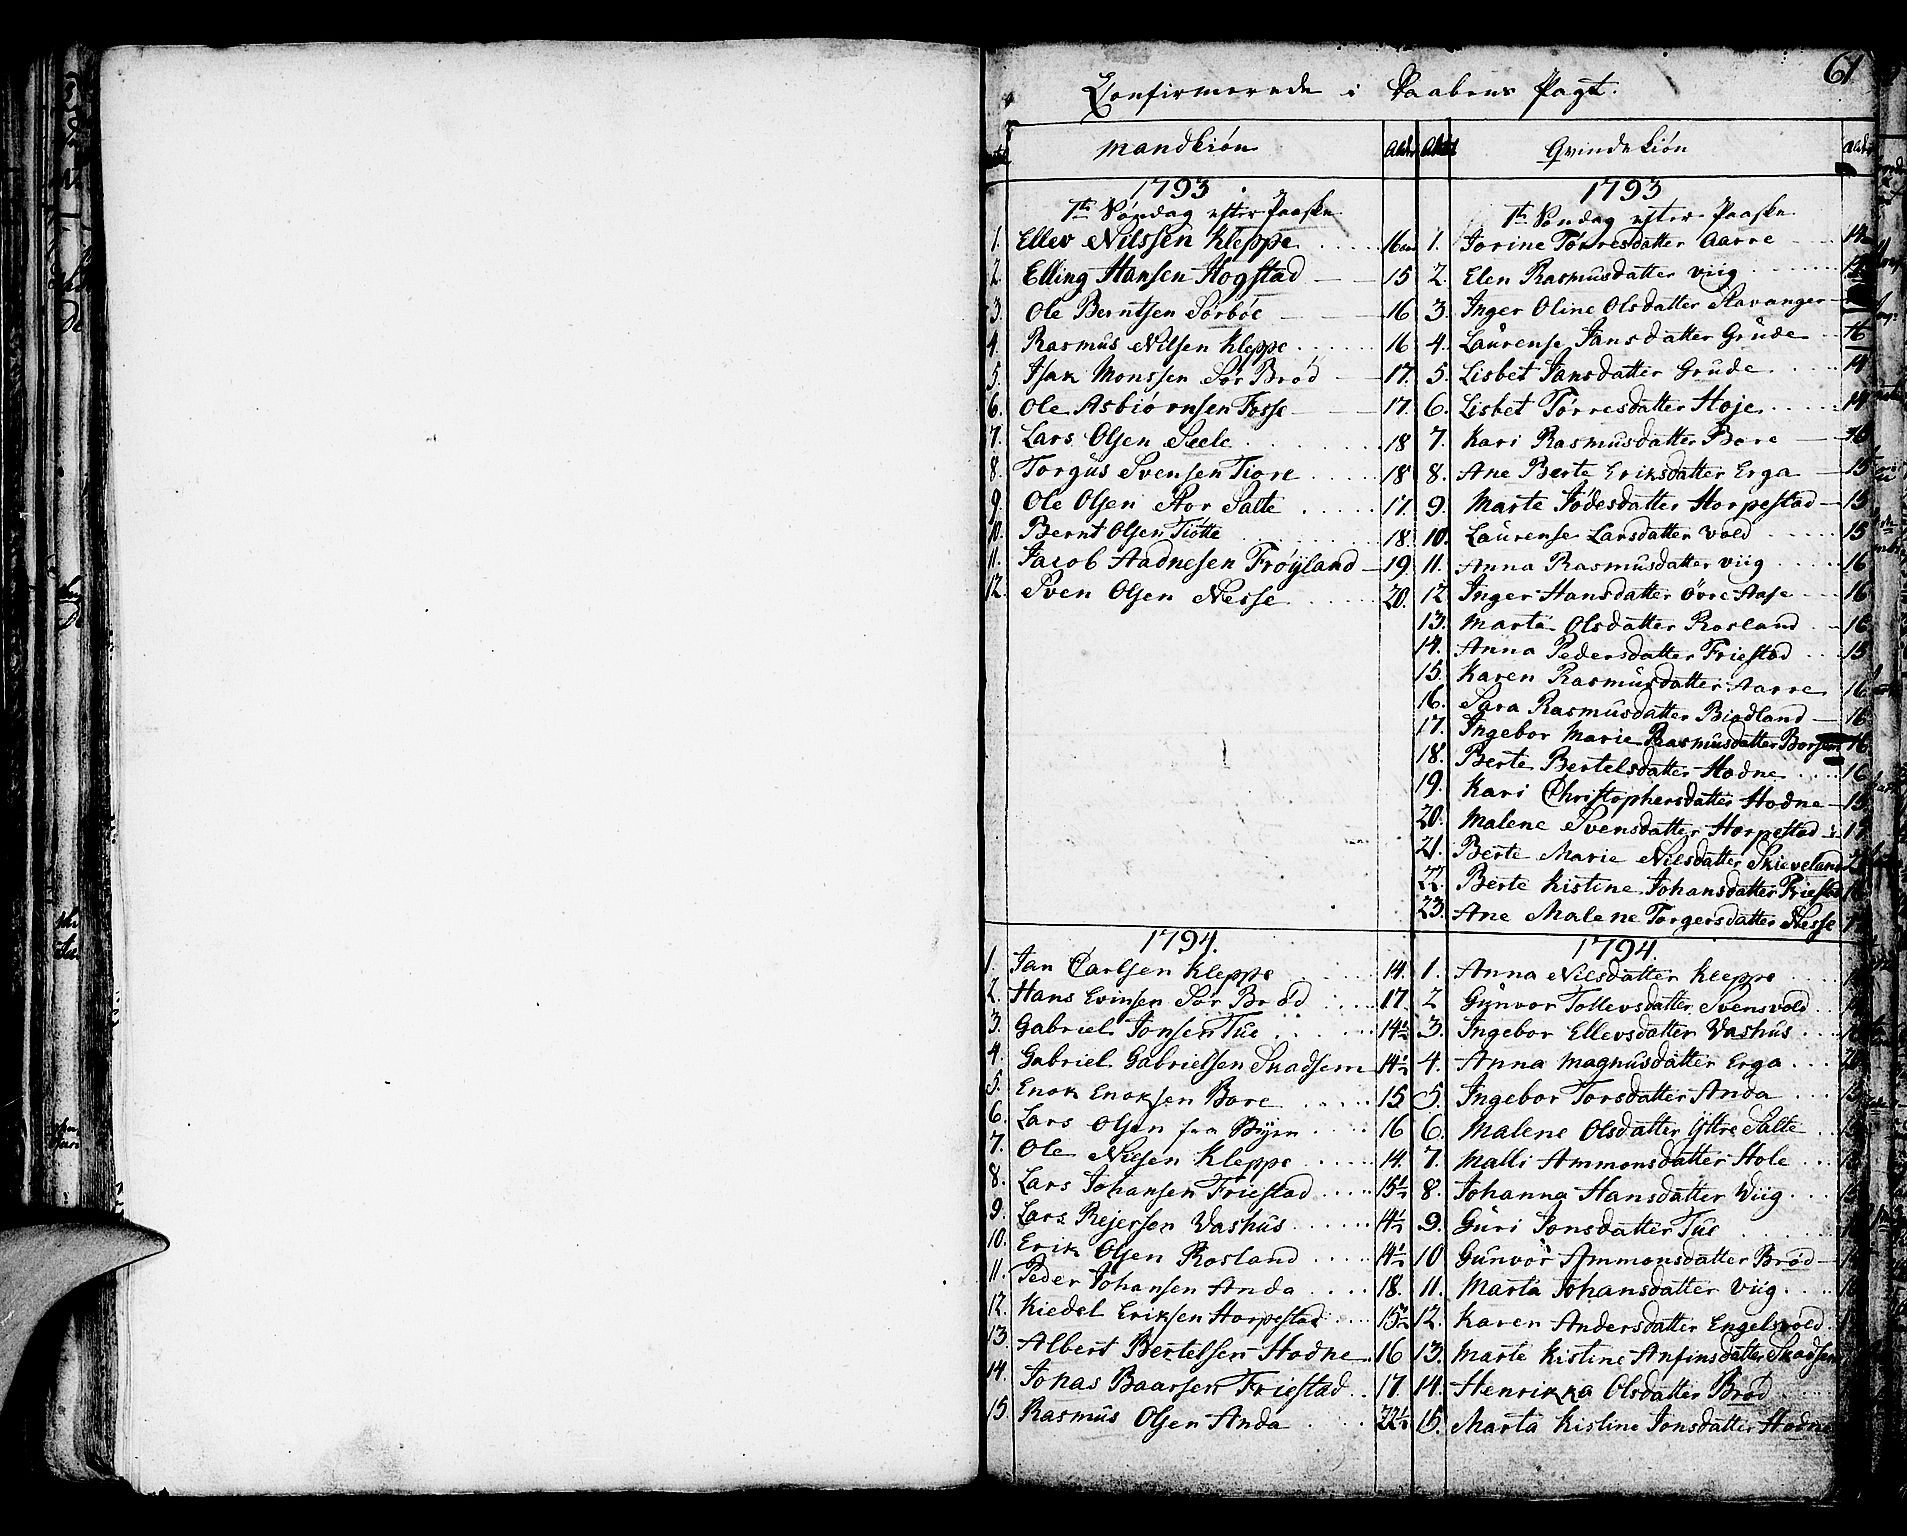 61
Confirmerede i Daabens Pagt.
Mandkiön Alder
1793
1te Söndag efter Paaske
1. Ellev Nilssen Kleppe 16
2. Elling Hansen Hogstad 15
3. Ole Berntsen Sörböe 16
4. Rasmus Nilsen Kleppe 16
5. Isak Monssen Sör Bröd 17.
6. Ole Asbiörnsen Fosse 17.
7. Lars Olsen Seele 18
8. Torgus Svensen Tiore 18
9. Ole Olsen Stor Salte 17.
10. Bernt Olsen Tiötte 18.
11. Jacob Aadnesen Fröyland 19.
12. Sven Olsen Nesse 20.
1794.
1. Jan Carlsen Kleppe 14.
2. Hans Evinsen Sör Bröd 17.
3. Gabriel Jonsen Tue 14½
4. Gabriel Gabrielsen Skadsem 14½
5. Enok Enoksen Bore 15
6. Lars Olsen fra Byen 16
7. Ole Nilsen Kleppe 14.
8. Lars Johansen Friestad 15½
9. Lars Rejersen Vashus 14½
10. Erik Olsen Rosland 14½
11. Peder Johansen Anda 18.
12. Kiedel Eriksen Horpestad 15½
13. Albert Bertelsen Hodne 16
14. Johas Baarsen Friestad 17.
15. Rasmus Olsen Anda 22½
Qvindekiön Alder
1793
1te Söndag efter Paaske
1. Jorine Törresdatter Aarre 14
2. Elen Rasmusdatter Viig
3. Inger Oline Olsdatter Stavanger
4. Laurense Jansdatter Grude 16
5. Lisbet Jansdatter Grude 14
6. Lisbet Törresdatter Hoje 14
7. Kari Rasmusdatter Bore 16
8. Ane Berte Eriksdatter Erga 15
9. Marte Jödesdatter Horpestad 15
10. Laurense Larsdatter Vold 15
11. Anna Rasmusdatter Viig 16
12. Inger Hansdatter övre Aase 16
13. Marta Olsdatter Rosland 16
14. Anna Pedersdatter Friestad 15
15. Karen Rasmusdatter Aarre 16
16. Sara Rasmusdatter Biodland 16
17. Ingebor Marie Rasmusdatter 16
18. Berte Bertelsdatter Hodne 16
19. Kari Christophersdatter Hodne 15
20. Malene Svensdatter Horpestad 17
21. Berte Marie Nilsdatter Skieveland
22. Berte Kistine Johansdatter Friestad
23. Ane Malene Torgersdatter Nesse
1794.
1. Anna Nilsdatter Kleppe
2 Gunvor Tollevsdatter Svensvold
3. Ingebor Ellevsdatter Vashus
4. Anna Magnusdatter Erga 20
5. Ingebor Torsdatter Anda
6. Malene Olsdatter Ytre Salte
7. Malli Ammonsdatter Hole
8. Johanna Hansdatter Viig
9. Guri Jonsdatter Tue
10 Gunvor Ammonsdatter Bröd
11. Marta Johansdatter Viig
12. Karen Andersdatter Engelsvold
13. Marte Kistine Anfinsdatter Skadsem
14. Henrikka Olsdatter Bröd
15. Marta Kistine Jonsdatter Hodne